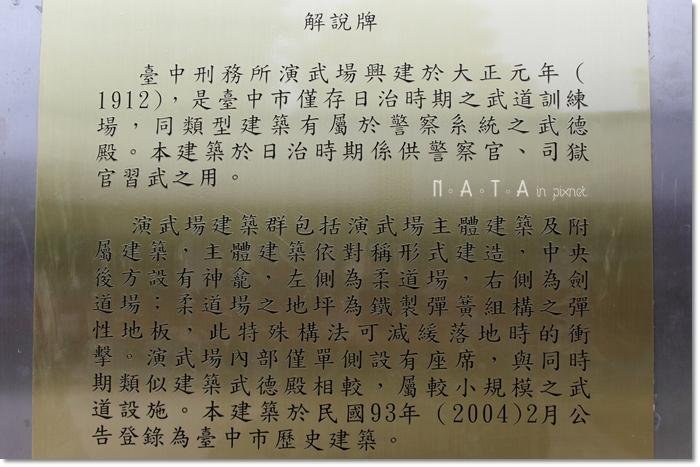 解說牌
臺中刑務所演武場興建於大正元年(
1912)，是臺中市僅存日治時期之武道訓練
場，同類型建築有屬於警察系統之武德
殿。本建築於日治時期係供警察官、司獄
官習武之用。
n。A。T。A in pixnet
演武場建築群包括演武場主體建築及附
屬建築，主體建築依對稱形式建造，中央
後方設有神龕，左側為柔道場，右側為劍
道場；柔道場之地坪為鐵製彈簧組構之彈
性地板，此特殊構法可減緩落地時的衝
擊。演武場內部僅單側設有座席，與同時
期類似建築武德殿相較，屬較小規模之武
道設施。本建築於民國93年 (2004)2月公
告登錄為臺中市歷史建築。